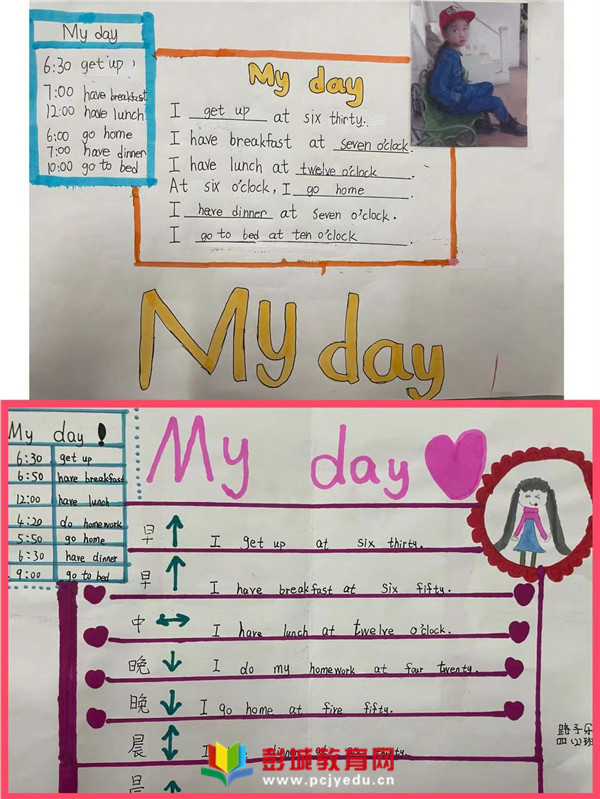 My day
6:30 get up!
7:00 have breakfast
12:00 have lunch
6:00 go home
7:00 have dinner
10:00 go to bed
My day
I get up at six thirty.
I have breakfast at seven o'clock.
I have lunch at twelve o'clock.
At six o'clock, I go home.
I have dinner at seven o'clock.
I go to bed at ten o'clock.
My day
My day!
6:30 get up
6:50 have breakfast
12:00 have lunch
4:20 do homework
5:50 go home
6:30 have dinner
9:00 go to bed
My day
早 I get up at six thirty.
早 I have breakfast at six fifty.
中 I have lunch at twelve o'clock.
晚 I do my homework at four twenty.
晚 I go home at five fifty.
晨 I dinner thirty.
四(2)班
彭城教育网
www.pcjyedu.cn